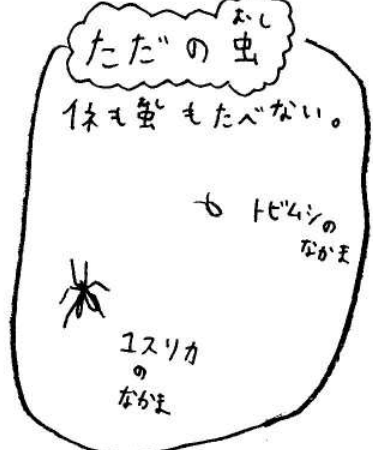 むし
ただの虫
イネも虫もたべない。
トビムシの
なかま
ユスリカ
の
なかま